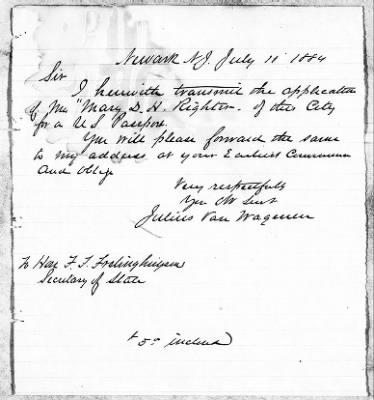 Newark NJ. July 11 1884
Sir
I herewith transmit the application
of Mrs "Mary D. H. Righter. of this City
for a US Passport.
You will please forward the same
to my address at your Earliest
and oblige
Very respectfully
Your Obt Servt
Julius Van Wagenen
To Hon F. T. Frelinghuysen
Secretary of State
$ 5 00 inclosed